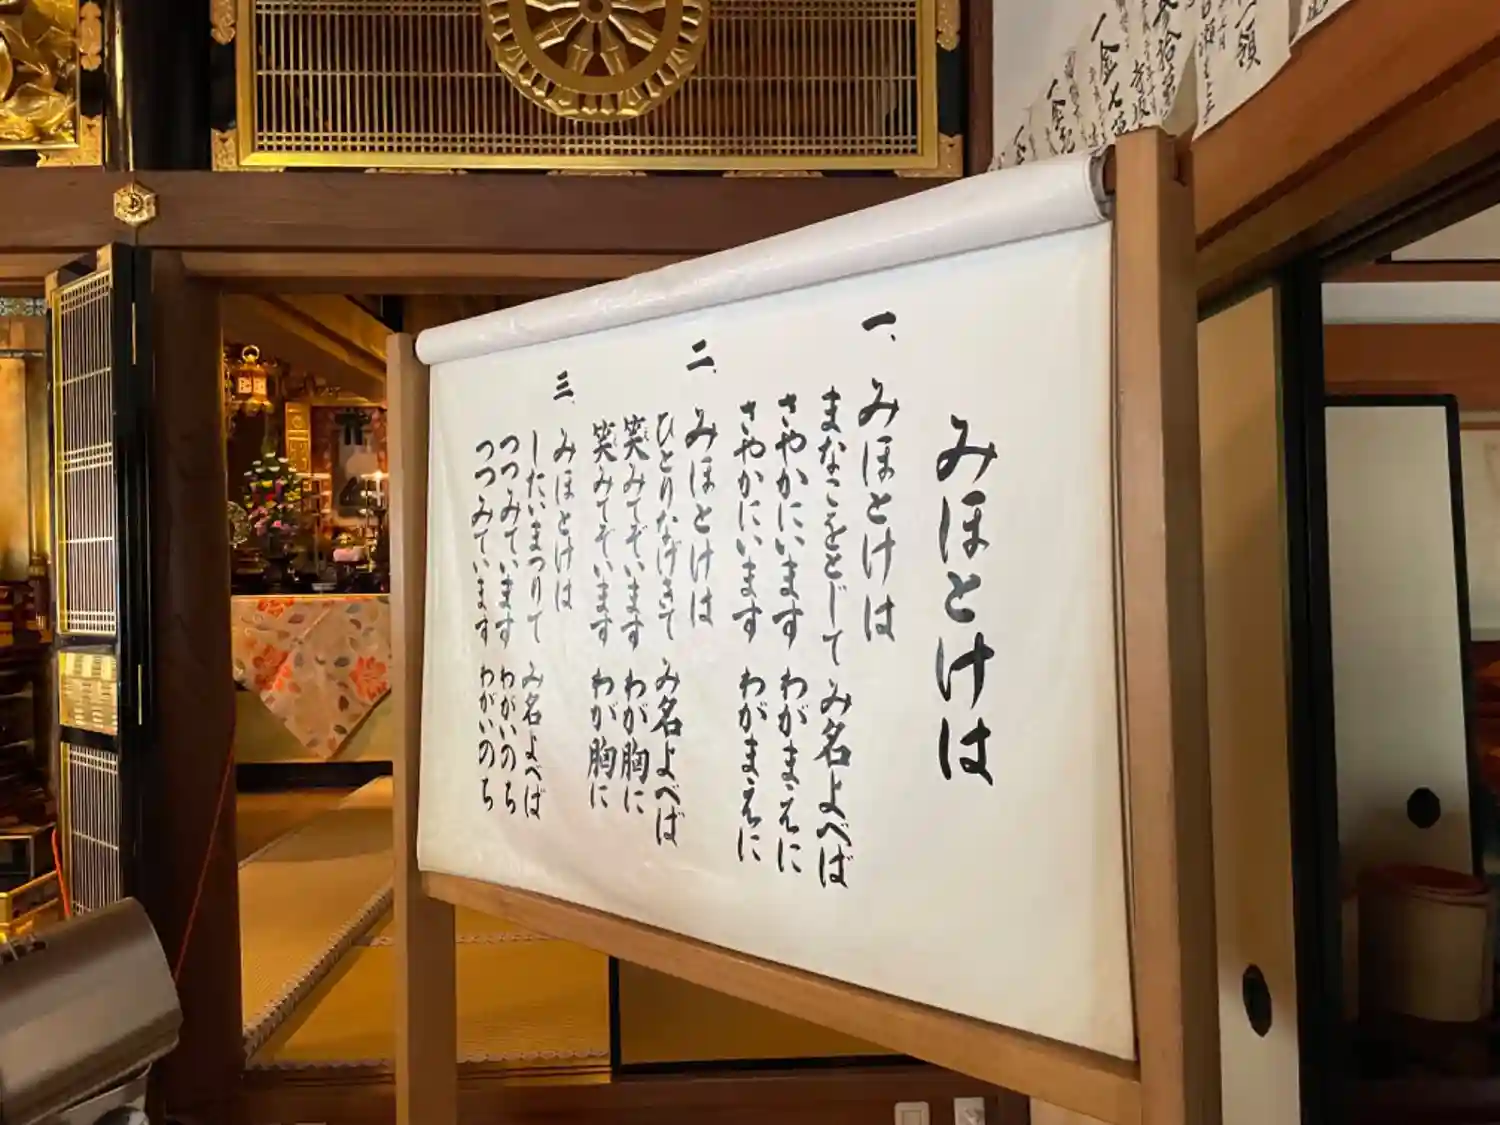 みほとけは
一、みほとけは
まなこをとじて み名よべば
さやかにいます わがまえに
さやかにいます わがまえに
二、みほとけは
ひとりなげきて み名よべば
笑みてぞいます わが胸に
笑みてぞいます わが胸に
三、みほとけは
したいまつりて み名よべば
つつみています わがいのち
つつみています わがいのち